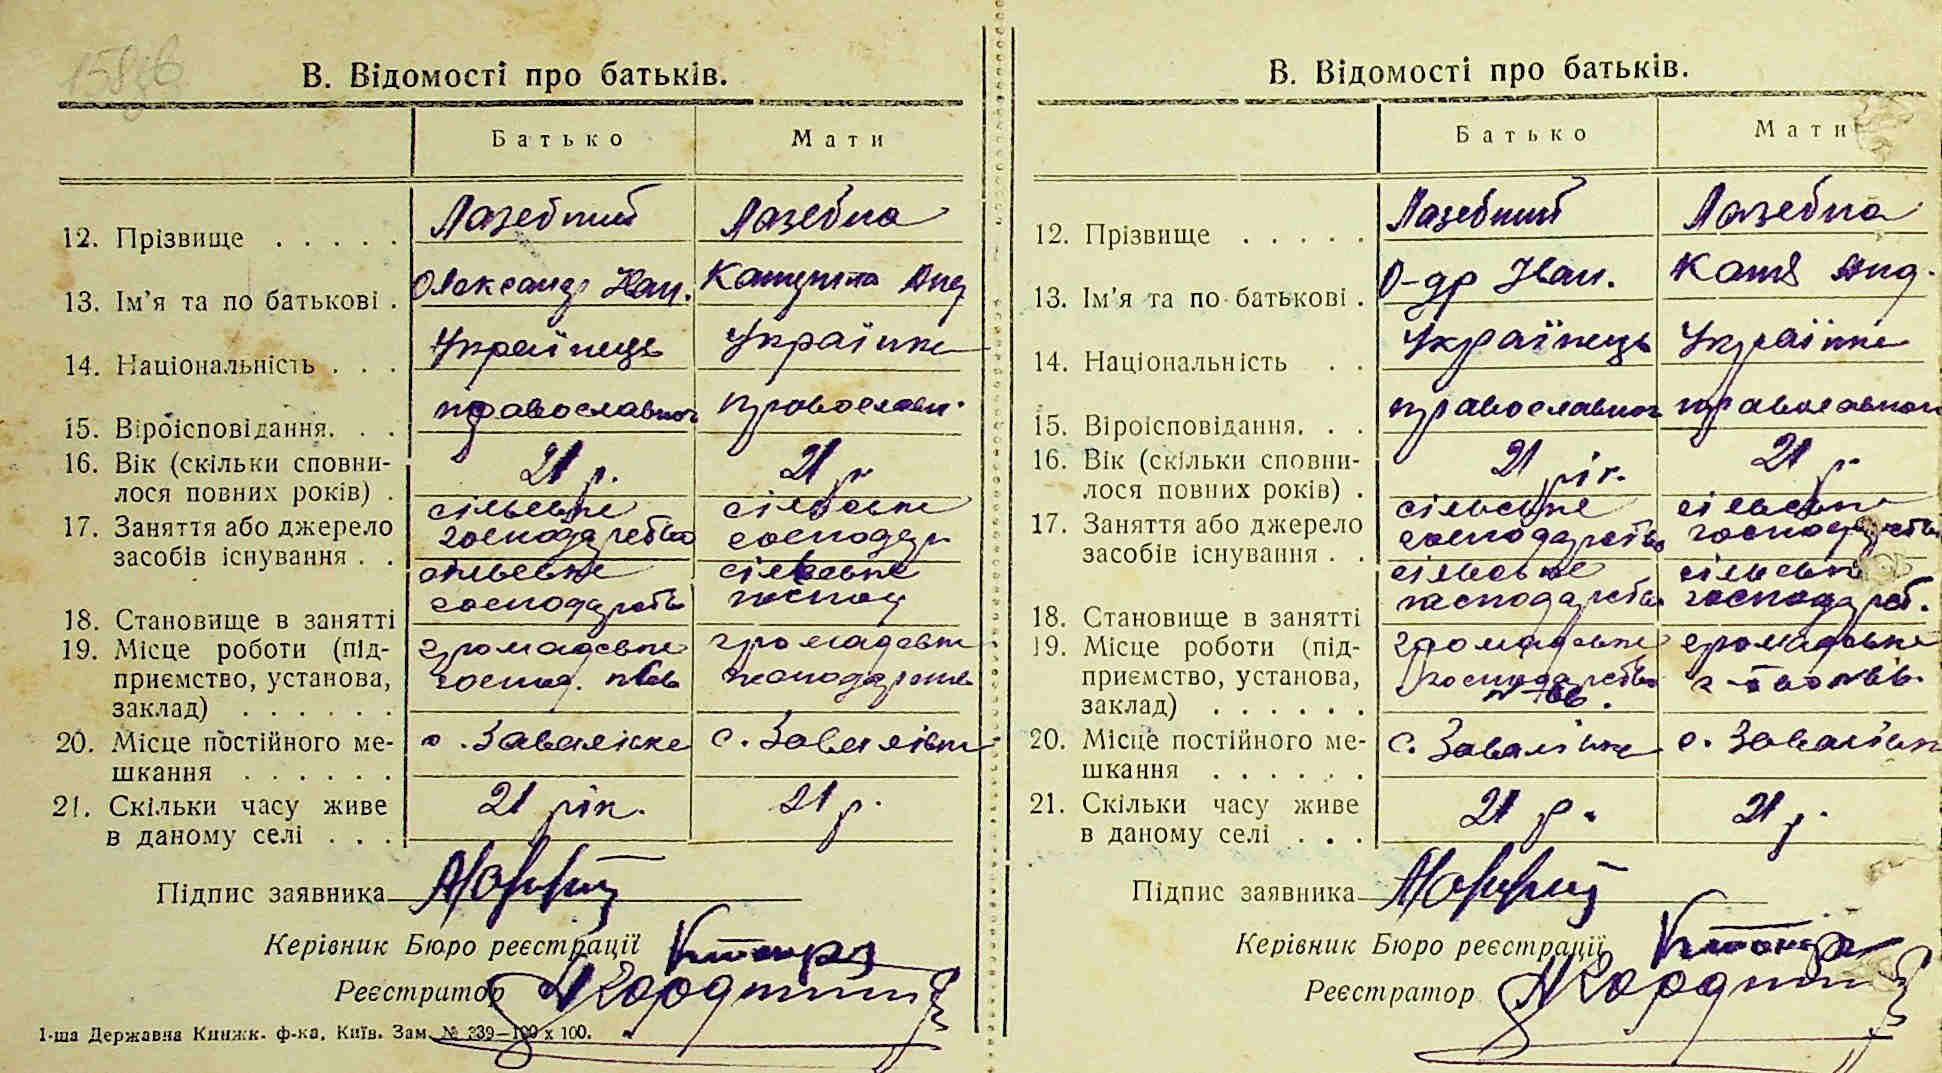 158
В. Відомості про батьків.
Батько Мати
12. Прізвище . . . . . Лазебний Лазебна
13. Ім'я та по батькові . Олександр Іван. Анд
14. Національність . . . Українець Українка
15. Віроісповідання. . . православної православн.
16. Вік (скільки сповни-
лося повних років) . 21 р. 21 р.
17. Заняття або джерело сільське сільське
засобів існування . . господарство господар
сільське сільське
18. Становище в занятті господарство господ
19. Місце роботи (під- громадське громадське
приємство, установа, господ.
заклад) . . . . . .
20. Місце постійного ме- с. Завалівка с. Завалівка
шкання . . . . . .
21. Скільки часу живе 21 рік. 21 р.
в даному селі . . .
Підпис заявника
Керівник Бюро реєстрації
Реєстратор
1-ша Державна Книжк. ф-ка, Київ. Зам. № 339—100 х 100.
В. Відомості про батьків.
Батько Мати
12. Прізвище . . . . . Лазебний Лазебна
13. Ім'я та по батькові . О-др Іван. Анд.
14. Національність . . Українець Українка
15. Віроісповідання. . . православної православної
16. Вік (скільки сповни-
лося повних років) . 21 рік. 21 р.
17. Заняття або джерело сільське сільське
засобів існування . . господарство господарство
сільське сільське
18. Становище в занятті господарство господарст.
19. Місце роботи (під- громадське громадське
приємство, установа, господарство
заклад) . . . . . .
20. Місце постійного ме- с. Завалівка с. Завалівка
шкання . . . . . .
21. Скільки часу живе 21 р. 21 р.
в даному селі . . .
Підпис заявника
Керівник Бюро реєстрації
Реєстратор